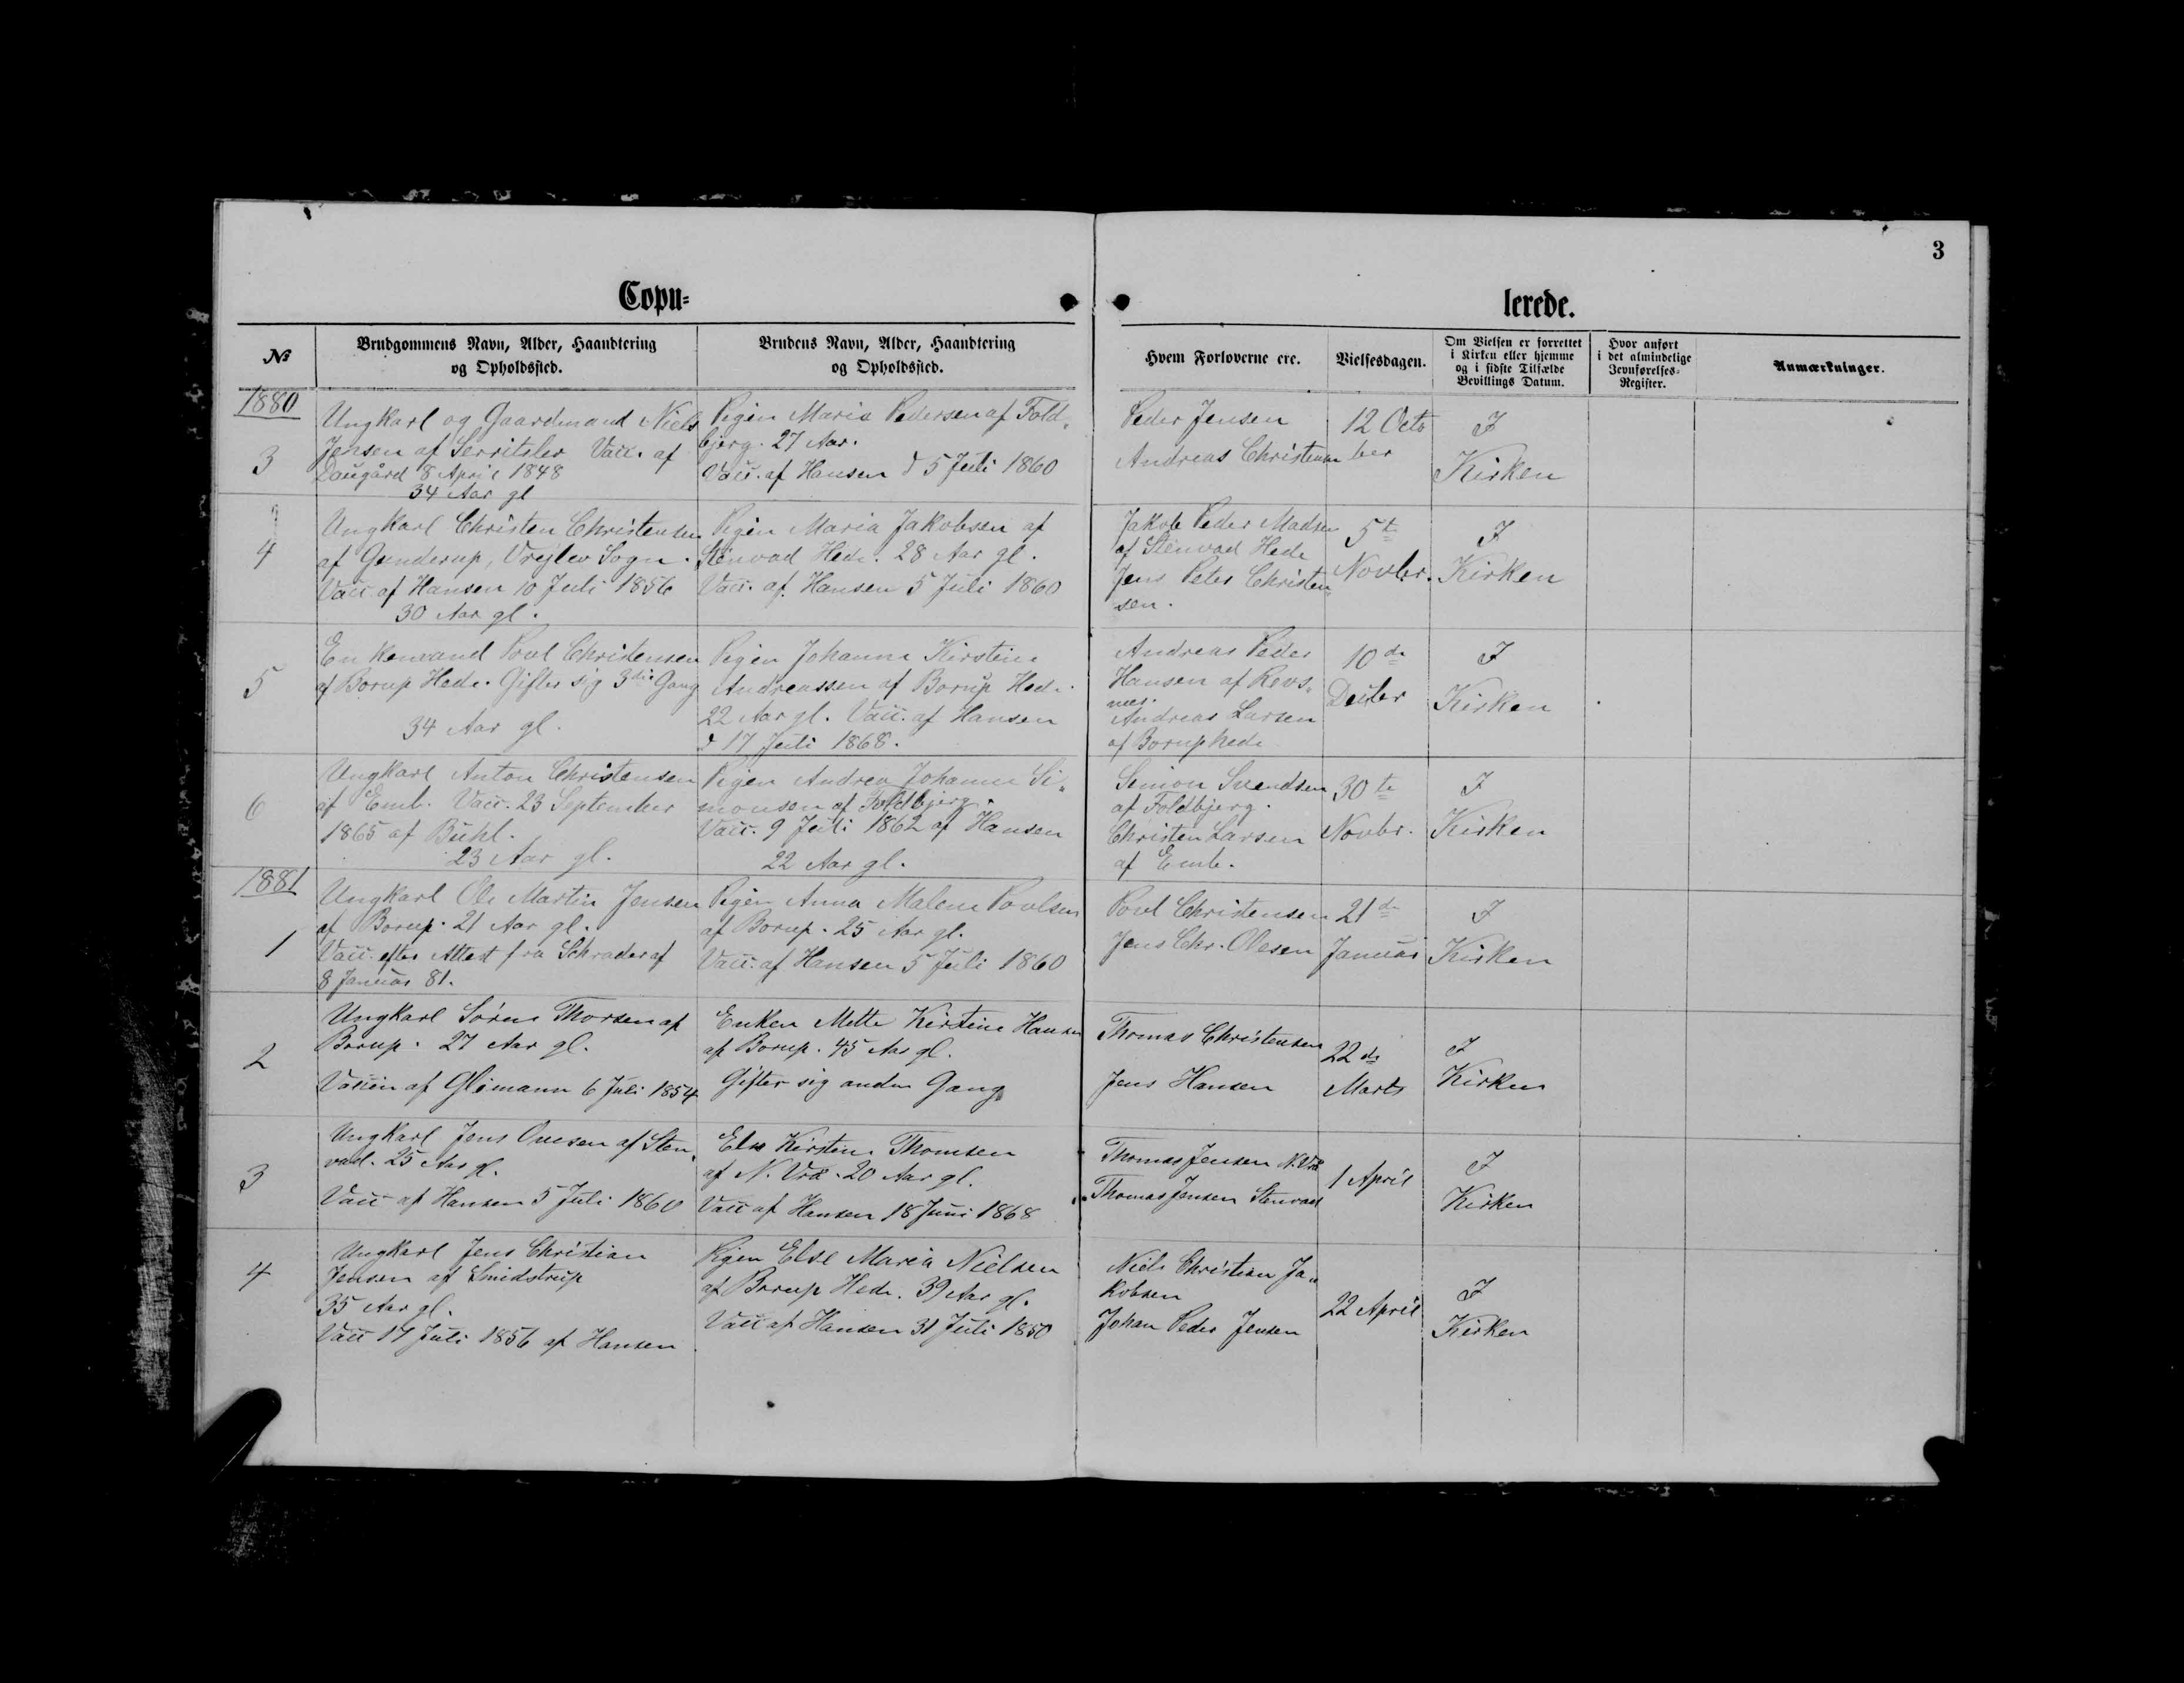 3
Copu-
lerede.
№
Brudgommens Navn, Alder, Haandtering
og Opholdssted.
Brudens Navn, Alder, Haandtering
og Opholdssted.
Hvem Forloverne ere.
Vielsesdagen.
Om Vielsen er forrettet
i Kirken eller hjemme
og i sidste Tilfælde
Bevillings Datum.
Hvor anført
i det almindelige
Jevnførelses-
Register.
Anmærkninger.
1880
3
Ungkarl og Gaardmand Niels
Jensen af Serritslev Vacc. af
Daugård 8 April 1848
34 Aar gl
Pigen Maria Pedersen af Fold„
bjerg. 27 Aar.
Vacc. af Hansen d 5 Juli 1860
Peder Jensen
Andreas Christensen
12 Octo
ber
I
Kirken
4
Ungkarl Christen Christensen
af Gunderup, Vrejlev Sogn.
Vacc af Hansen 10 Juli 1856
30 Aar gl.
Pigen Maria Jakobsen af
Stenvad Hede. 28 Aar gl.
Vacc. af Hansen 5 Juli 1860
Jakob Peder Madsen
af Stenvad Hede
Jens Peter Christen„
sen.
5te
Novbr.
I
Kirken
5
Enkemand Povl Christensen
af Borup Hede. Gifter sig 3die Gang
34 Aar gl.
Pigen Johanne Kirstine
Andreassen af Borup Hede.
22 Aar gl. Vacc. af Hansen
d 17 Juli 1868.
Andreas Peder
Hansen af Revs„
næs.
Andreas Larsen
af Boruphede
10de
Decbr
I
Kirken
6
Ungkarl Anton Christensen
af Emb. Vacc. 23 September
1865 af Buhl.
23 Aar gl.
Pigen Andrea Johanne Si„
monsen af Foldbjerg.
Vacc. 9 Juli 1862 af Hansen
22 Aar gl.
Simon Svendsen
af Foldbjerg.
Christen Larsen
af Emb.
30te
Novbr.
I
Kirken
1881
1
Ungkarl Ole Martin Jensen
af Borup. 21 Aar gl.
Vacc. efter Attest fra Schrader af
8 Januar 81.
Pigen Anna Malene Povlsen
af Borup. 25 Aar gl.
Vacc. af Hansen 5 Juli 1860
Povl Christensen
Jens Chr. Olesen
21de
Januar
I
Kirken
2
Ungkarl Søren Thorsen af
Borup. 27 Aar gl.
Vaccin af Glimann 6 Juli 1854
Enken Mette Kirstine Hansen
af Borup. 45 Aar gl.
Gifter sig anden Gang
Thomas Christensen
Jens Hansen
22de
Marts
I
Kirken
3
Ungkarl Jens Ovesen af Sten„
vad. 25 Aar gl.
Vacc af Hansen 5 Juli 1860
Else Kirstine Thomsen
af N. Vrå. 20 Aar gl.
Vacc af Hansen 18 Juni 1868
Thomas Jensen N. Vrå
Thomas Jensen Stenvad
1 April
I
Kirken
4
Ungkarl Jens Christian
Jensen af Smidstrup
35 Aar gl.
Vacc 17 Juli 1856 af Hansen
Pigen Else Maria Nielsen
af Borup Hede. 39 Aar gl.
Vacc af Hansen 31 Juli 1850
Niels Christian Ja„
kobsen
Johan Peder Jensen
22 April
I
Kirken